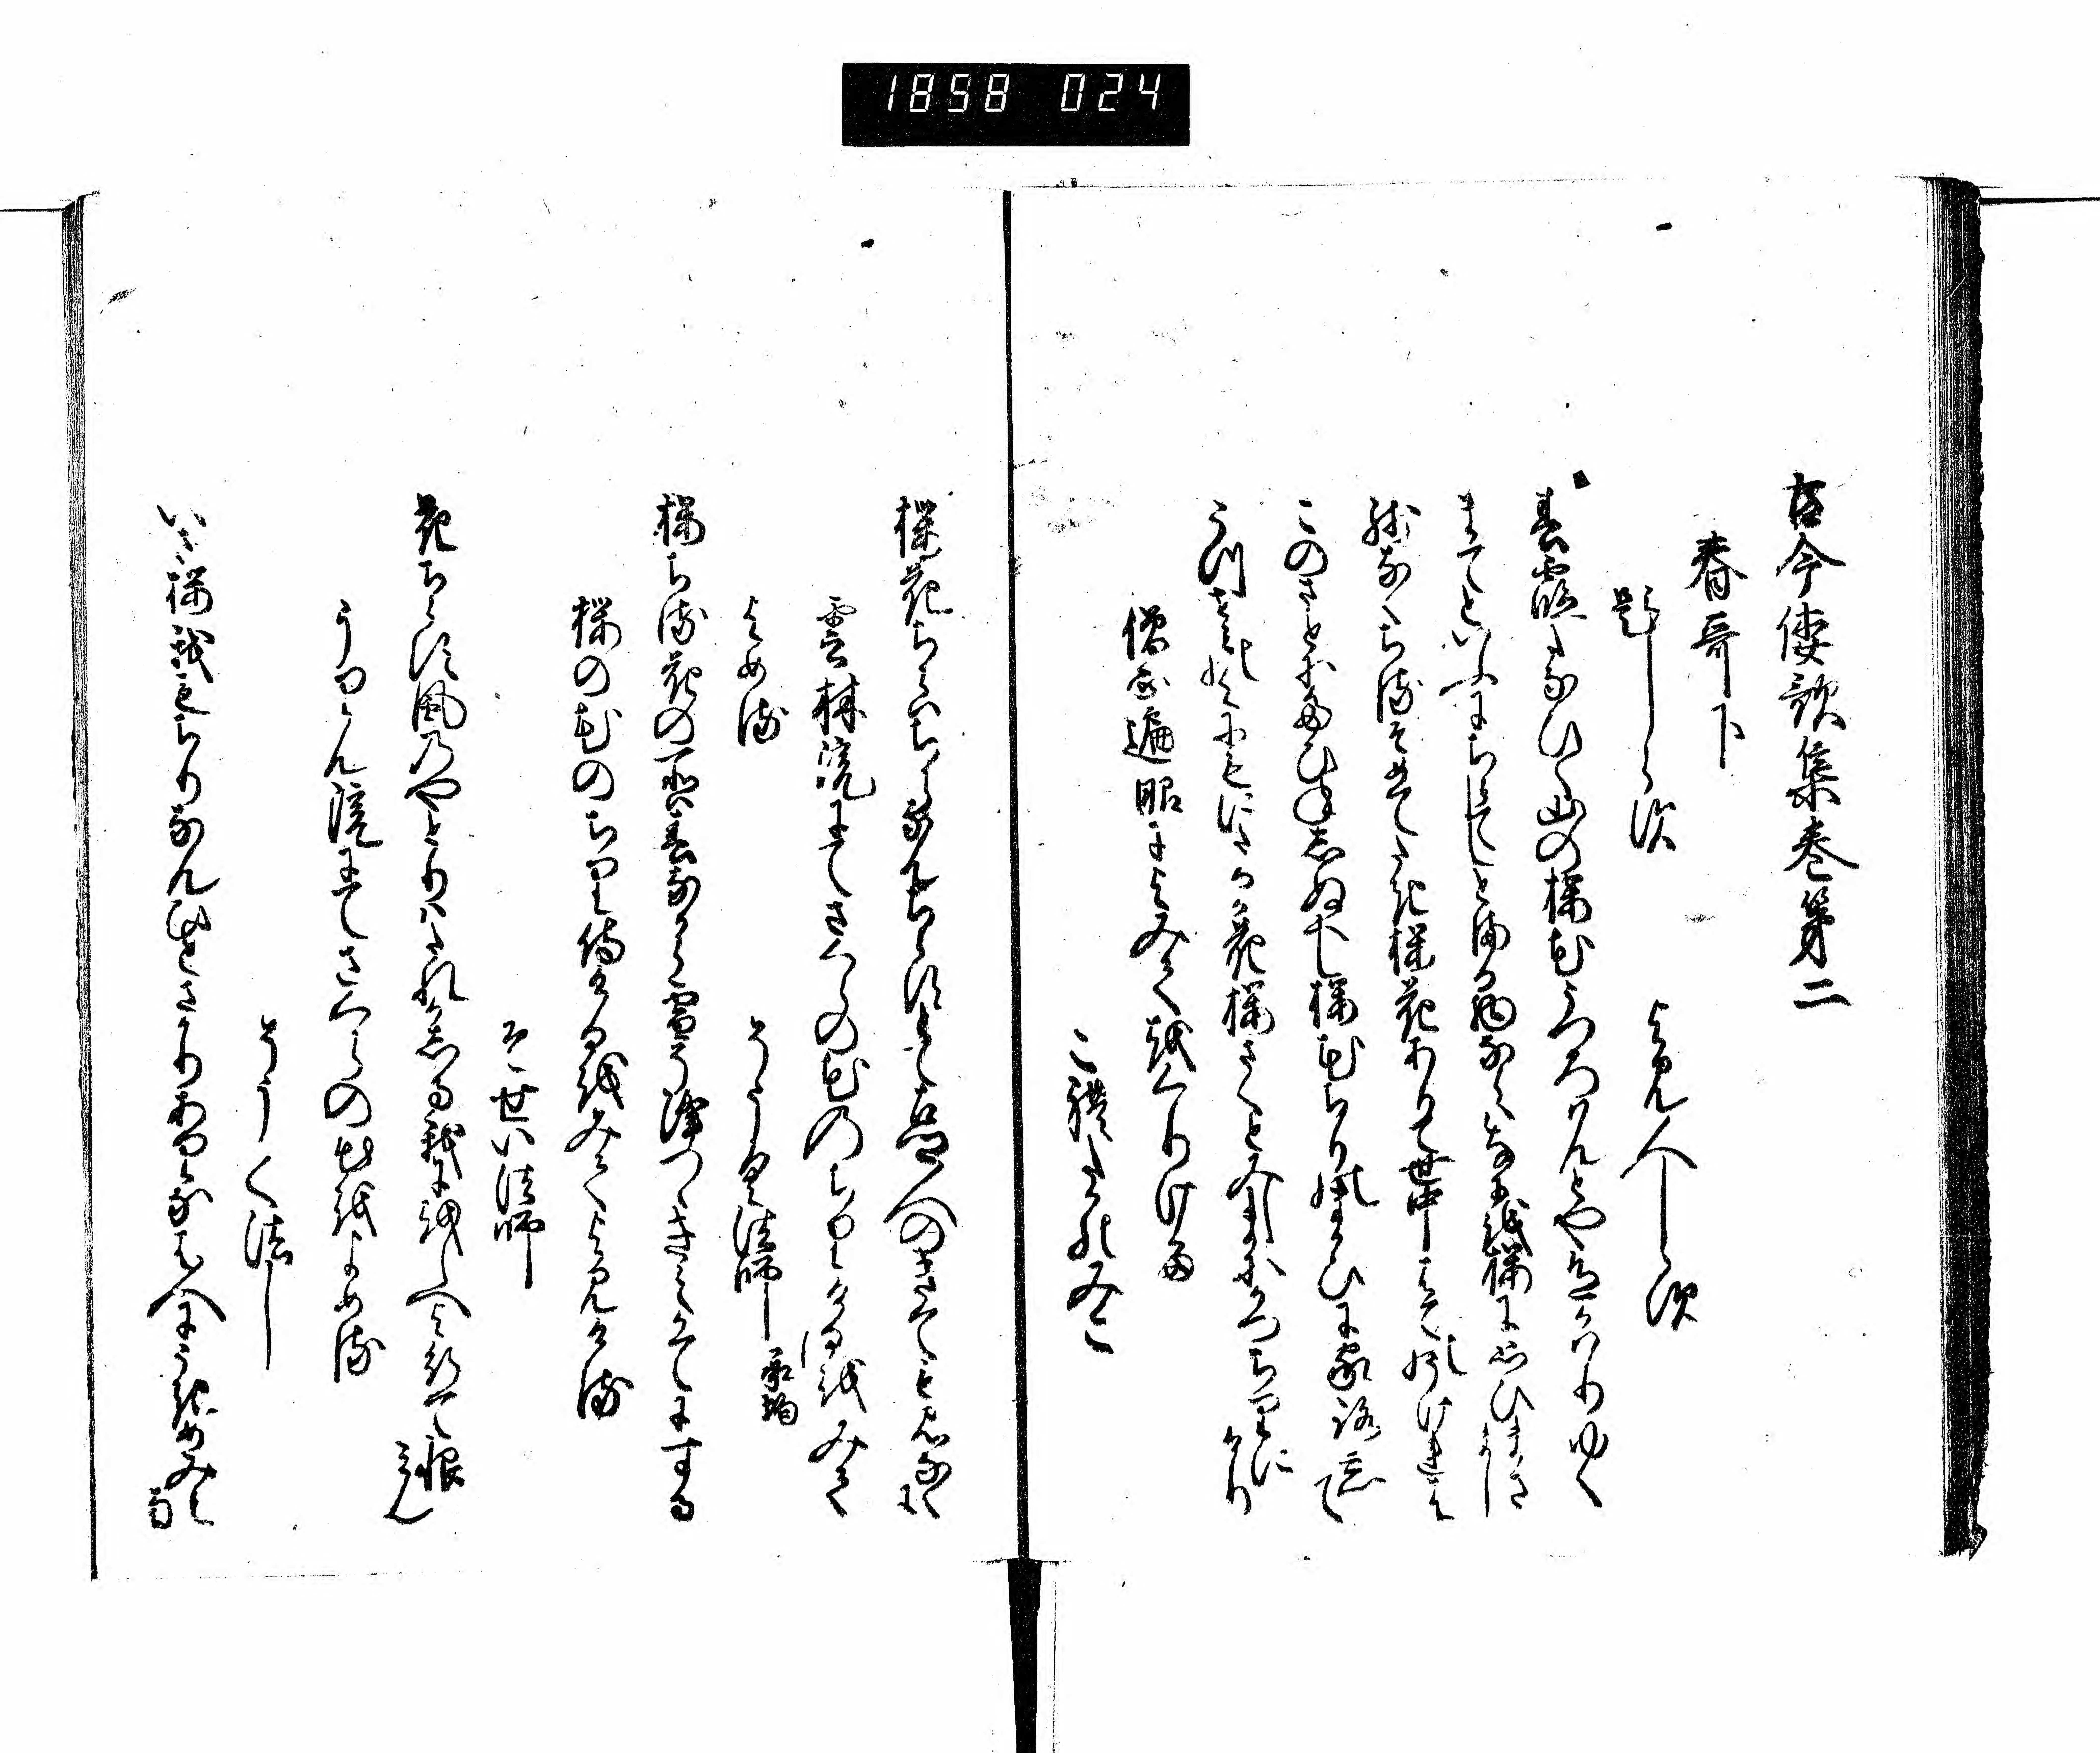 1858 024
古今倭歌集巻第二
春哥下
題しらす
よみ人しらす
春霞たなひく山の桜花うつろはんとや色かはりゆく
まてといふにちらてしとまる物ならはなにを桜に思ひまさまし
残なくちるそめてたき桜花ありて世中はてのうけれは
このさとにたひねしぬへし桜花ちりのまかひに家路忘て
うつせみの世にもにたるか花桜さくとみしまにかつちりにけり
僧正遍昭によみてをくりける
これたかのみこ
桜花ちらはちらなんちらすとて古郷人のきてもみなくに
雲林院にてさくらの花のちりけるをみて
よめる
そうく法師 承均
桜ちる花の所は春なから雪そ降つゝきえかてにする
桜の花のちり侍けるをみてよみける
そせい法師
花ちらす風のやとりはたれかしる我にをしへよ行て恨みん
うりんゐん院にてさくらの花をよめる
そうく法し
いさ桜我もちりなんひとさかりありなは人にうきめみえなん